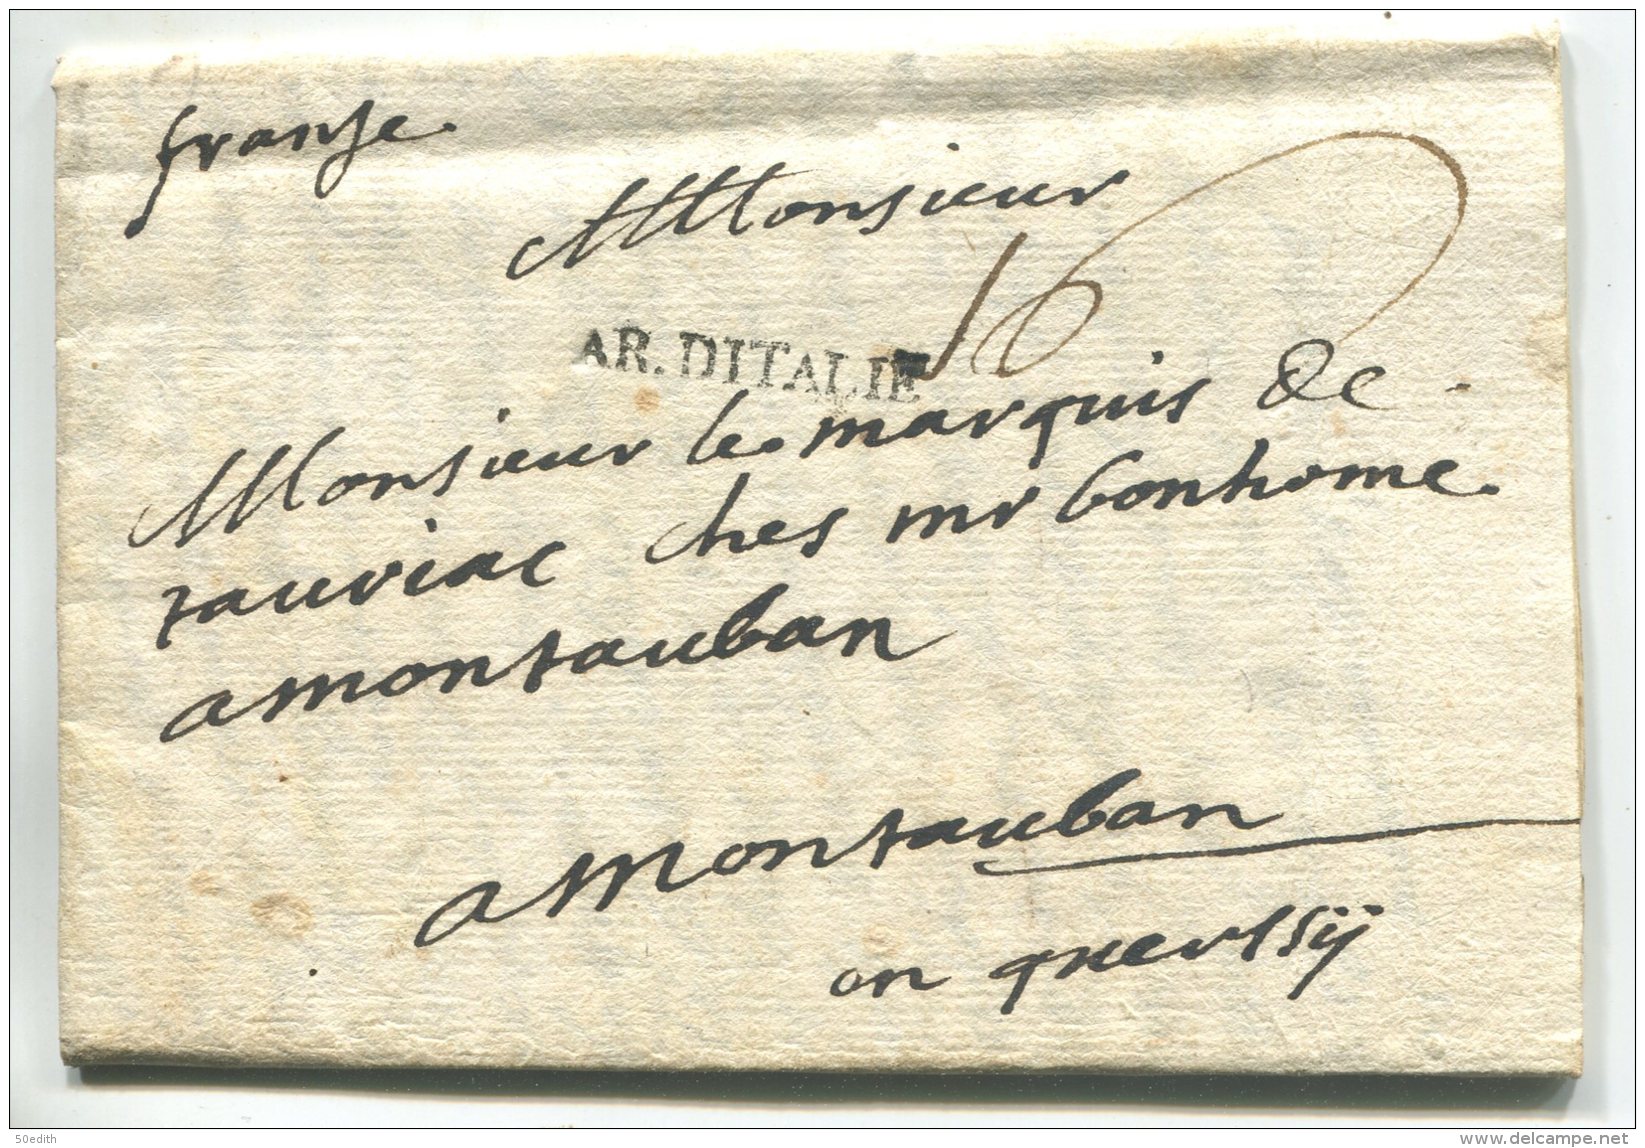 franse
Monsieur
16
AR. DITALIE
Monsieur le marquis de
tauriac ches mr bonhome
a montauban
a montauban
en querssÿ
50edith
www.delcampe.net